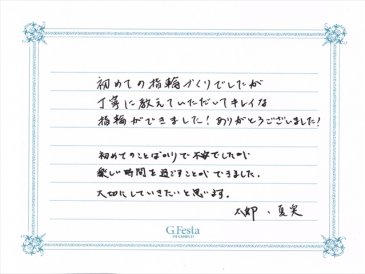 初めての指輪づくりでしたが
丁寧に教えていただいてキレイな
指輪ができました！ありがとうございました！
初めてのことばかりで不安でしたが
楽しい時間を過ごすことができました。
大切にしていきたいと思います。
太郎、夏実
G.Festa